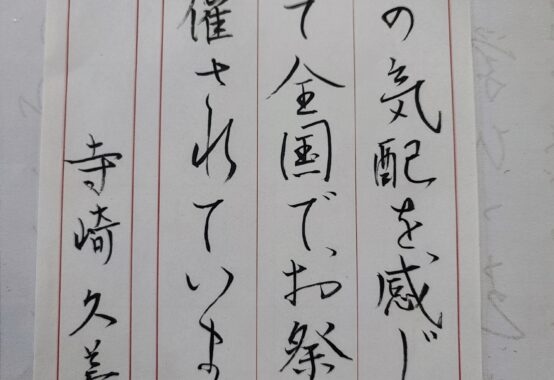 の気配を感じ
て全国で、お祭
催されていま
寺崎久美